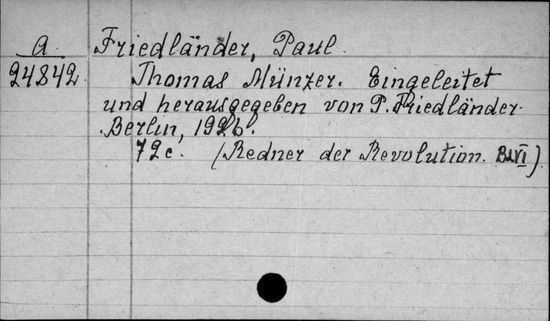 A Friedländer, Paul.
24842. Thomas Münzer. Eingeleitet
und herausgegeben von P. Friedländer.
Berlin, 1926.
72c. (Redner der Revolution. Bd. VI).